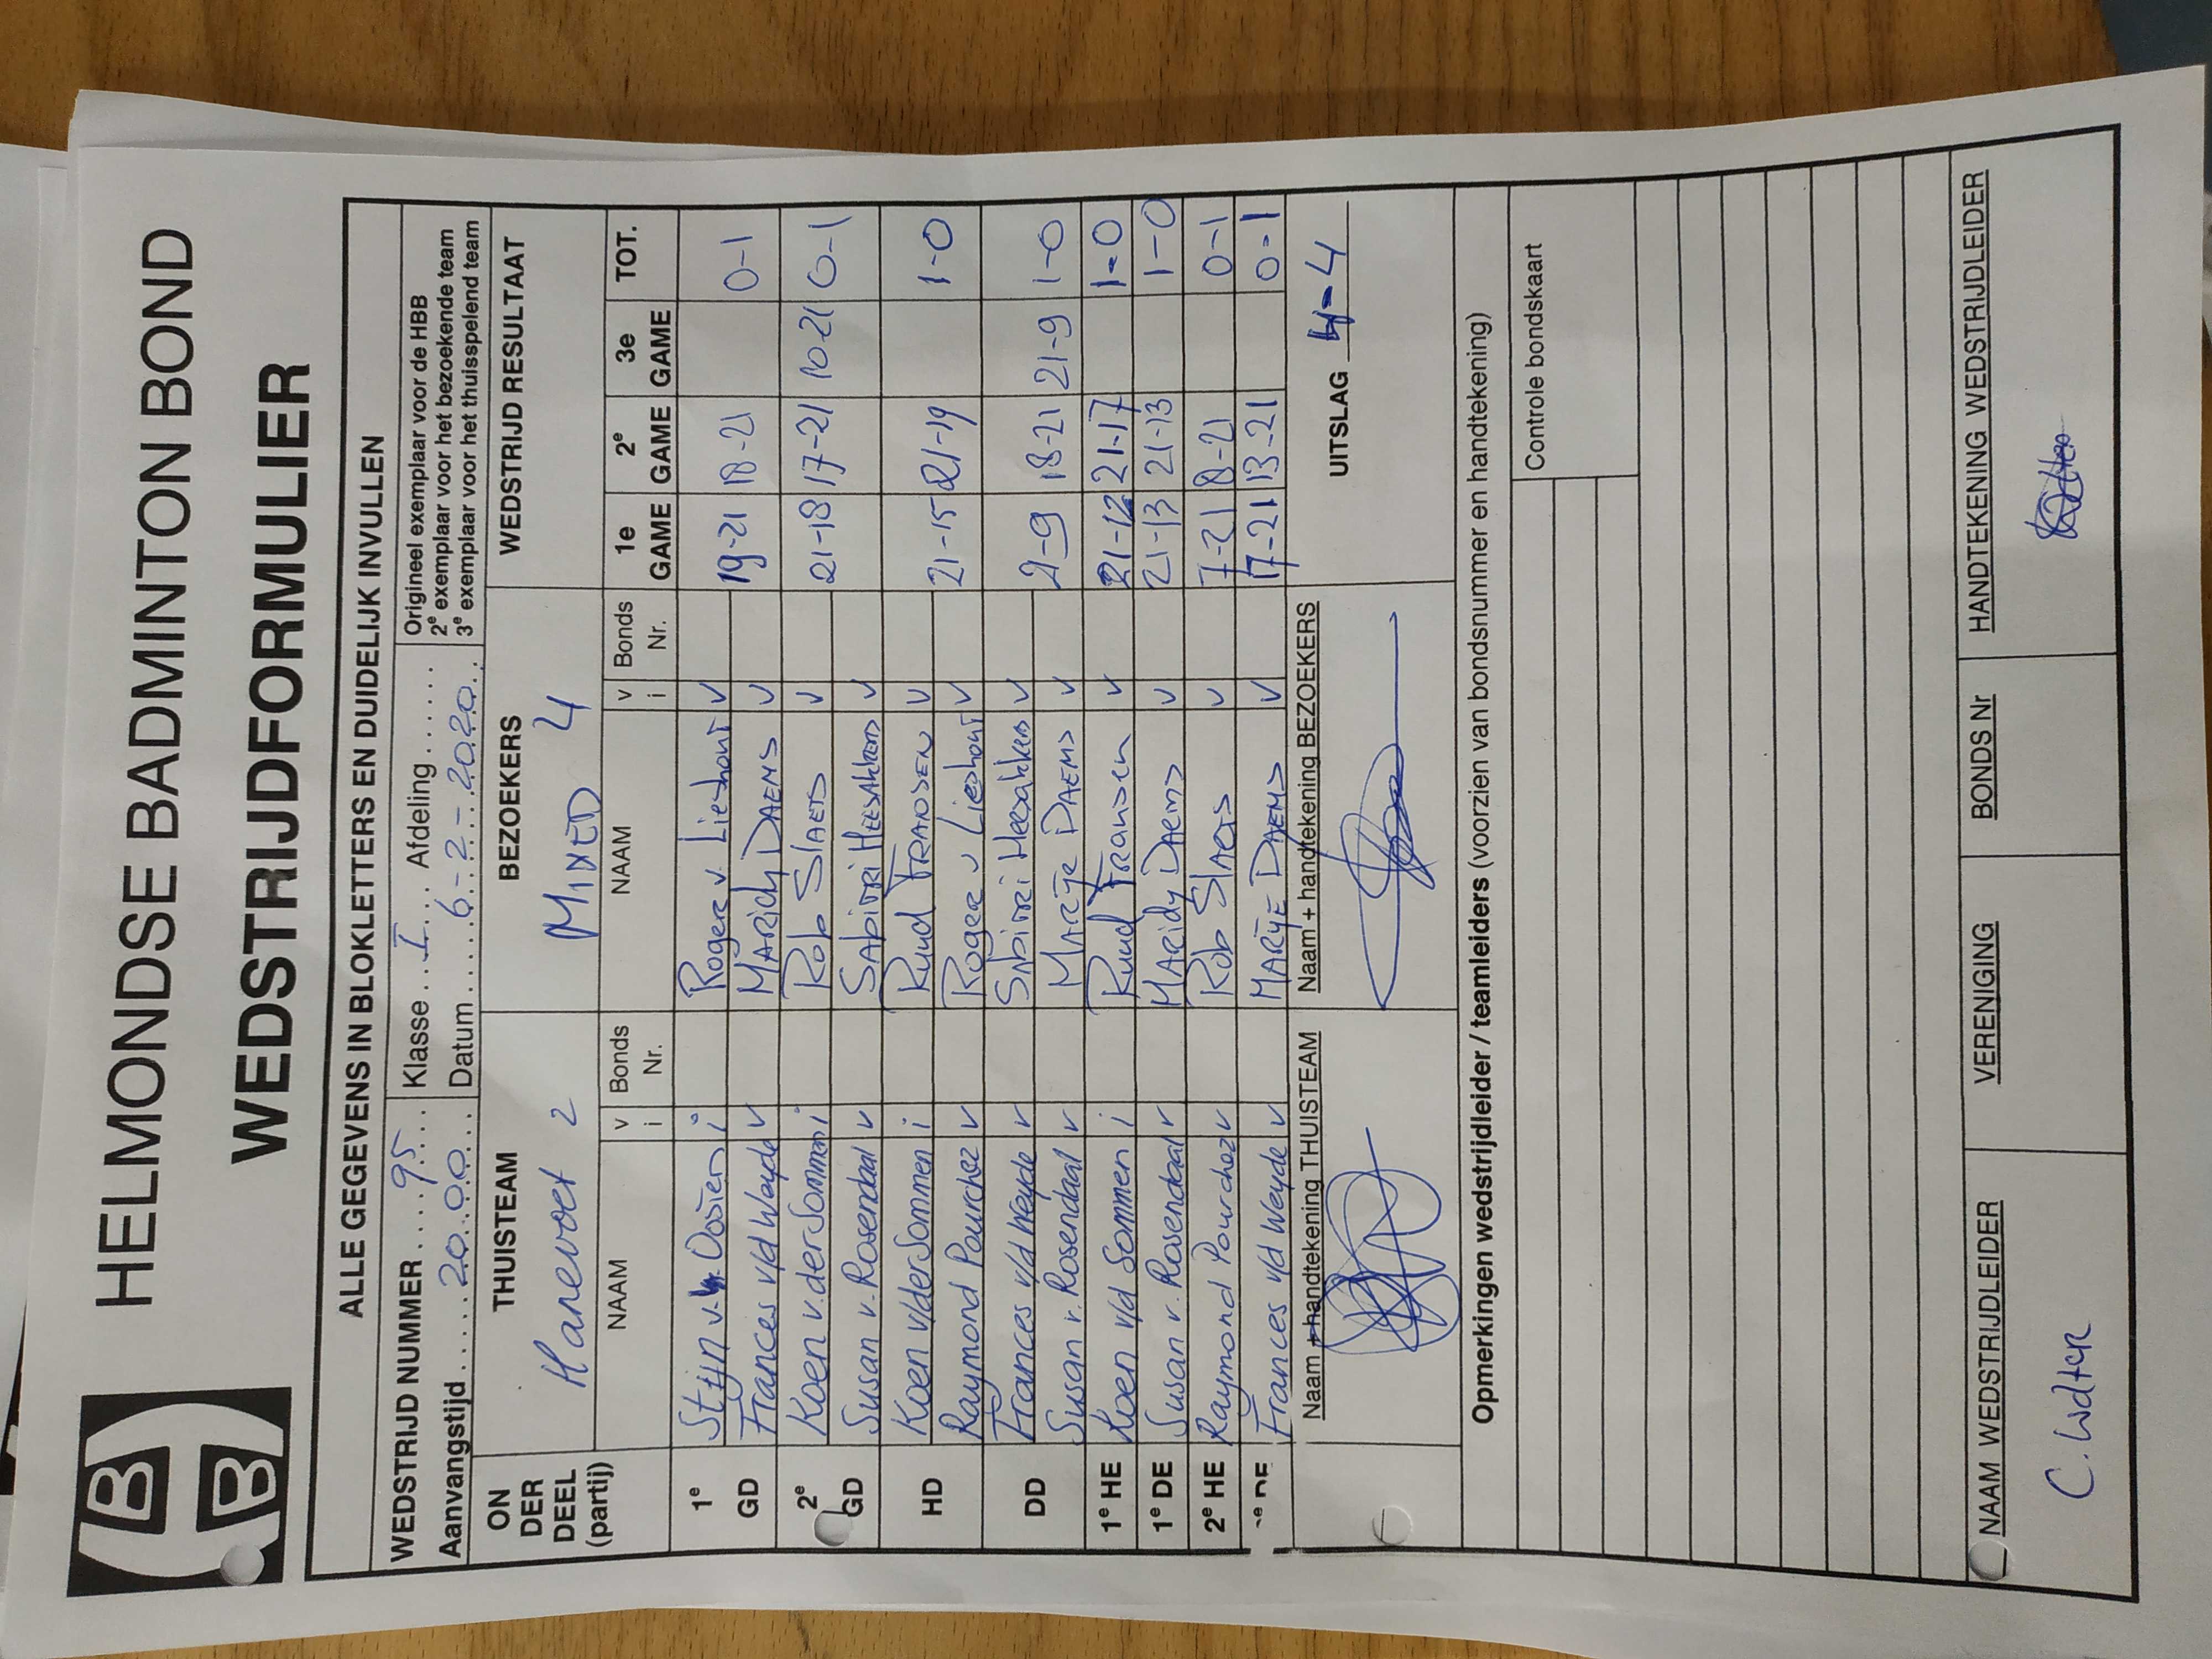 HELMONDSE BADMINTON BOND
WEDSTRIJDFORMULIER
ALLE GEGEVENS IN BLOKLETTERS EN DUIDELIJK INVULLEN
WEDSTRIJD NUMMER 95 Klasse I Afdeling
Aanvangstijd 20.00 Datum 6-2-2020
Origineel exemplaar voor de HBB
2e exemplaar voor het bezoekende team
3e exemplaar voor het thuisspelend team
ON DER DEEL (partij) THUISTEAM BEZOEKERS WEDSTRIJD RESULTAAT
Hanevoet 2 MIXED 4
NAAM v i Bonds Nr. NAAM v i Bonds Nr. 1e GAME 2e GAME 3e GAME TOT.
1e Stijn v. Oosten i Roger v. Lieshout v
GD Frances v/d Weyde v MARIDY DAEMS v 19-21 18-21 0-1
2e Koen v.der Sommen i Rob SLAETS v 21-18 17-21 10-21 0-1
GD Susan v. Rosendaal v SABITRI HEESAKKERS v
HD Koen v/der Sommen i Ruud FRANSEN v 21-15 21-19 1-0
Raymond Pourchez v Roger v Lieshout v
DD Frances v/d Weyde v SABITRI Heesakkers v
Susan v. Rosendaal v MARIJE DAEMS v 21-9 18-21 21-9 1-0
1e HE Koen v/d Sommen i Ruud Fransen v 21-12 21-17 1-0
1e DE Susan v. Rosendaal v MARIDY DAEMS v 21-13 21-13 1-0
2e HE Raymond Pourchez v Rob SLAETS v 7-21 8-21 0-1
2e DE Frances v/d Weyde v MARIJE DAEMS v 17-21 13-21 0-1
Naam + handtekening THUISTEAM Naam + handtekening BEZOEKERS UITSLAG 4-4
Opmerkingen wedstrijdleider / teamleiders (voorzien van bondsnummer en handtekening)
Controle bondskaart
NAAM WEDSTRIJDLEIDER VERENIGING BONDS Nr HANDTEKENING WEDSTRIJDLEIDER
C. Wolter